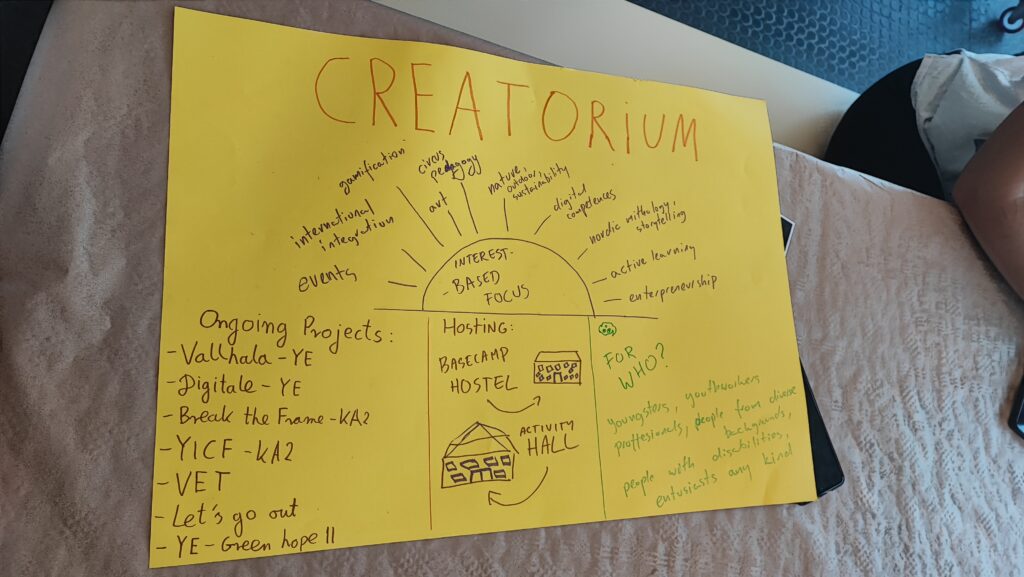 CREATORIUM
events
international
integration
gamification
art
circus
pedagogy
nature,
outdoor,
sustainability
digital
competences
nordic mithology,
storytelling
active learning
enterpreneurship
INTEREST-
- BASED
FOCUS
Ongoing Projects:
- Vallhala - YE
- Digitale - YE
- Break the Frame - KA2
- YICF - KA2
- VET
- Let's go out
- YE - Green hope II
HOSTING:
BASECAMP
HOSTEL
ACTIVITY
HALL
FOR
WHO?
youngsters, youthworkers
proffesionals, people from diverse
backgrounds,
people with disabilities,
entusiasts any kind